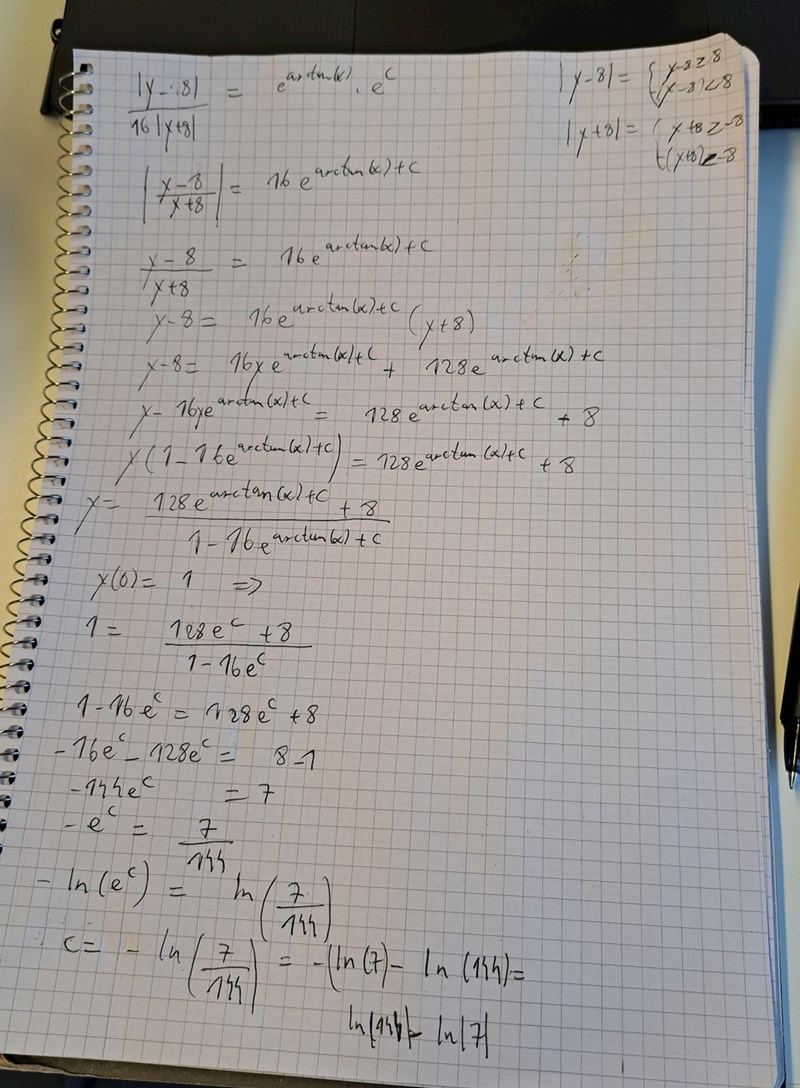 |y-8| / 16|y+8| = e^arctan(x) · e^c
|y-8| = { y-8≥8
(y-8)<8
|y+8| = { y+8≥-8
-(y+8)<-8
|(y-8)/(y+8)| = 16e^arctan(x)+c
(y-8)/(y+8) = 16e^arctan(x)+c
y-8 = 16e^arctan(x)+c (y+8)
y-8 = 16ye^arctan(x)+c + 128e^arctan(x)+c
y-16ye^arctan(x)+c = 128e^arctan(x)+c + 8
y(1-16e^arctan(x)+c) = 128e^arctan(x)+c + 8
y = (128e^arctan(x)+c + 8) / (1-16e^arctan(x)+c)
y(0) = 1 =>
1 = (128e^c + 8) / (1-16e^c)
1-16e^c = 128e^c + 8
-16e^c - 128e^c = 8-1
-144e^c = 7
-e^c = 7/144
-ln(e^c) = ln(7/144)
c = -ln(7/144) = -(ln(7) - ln(144) =
ln(144) - ln|7|